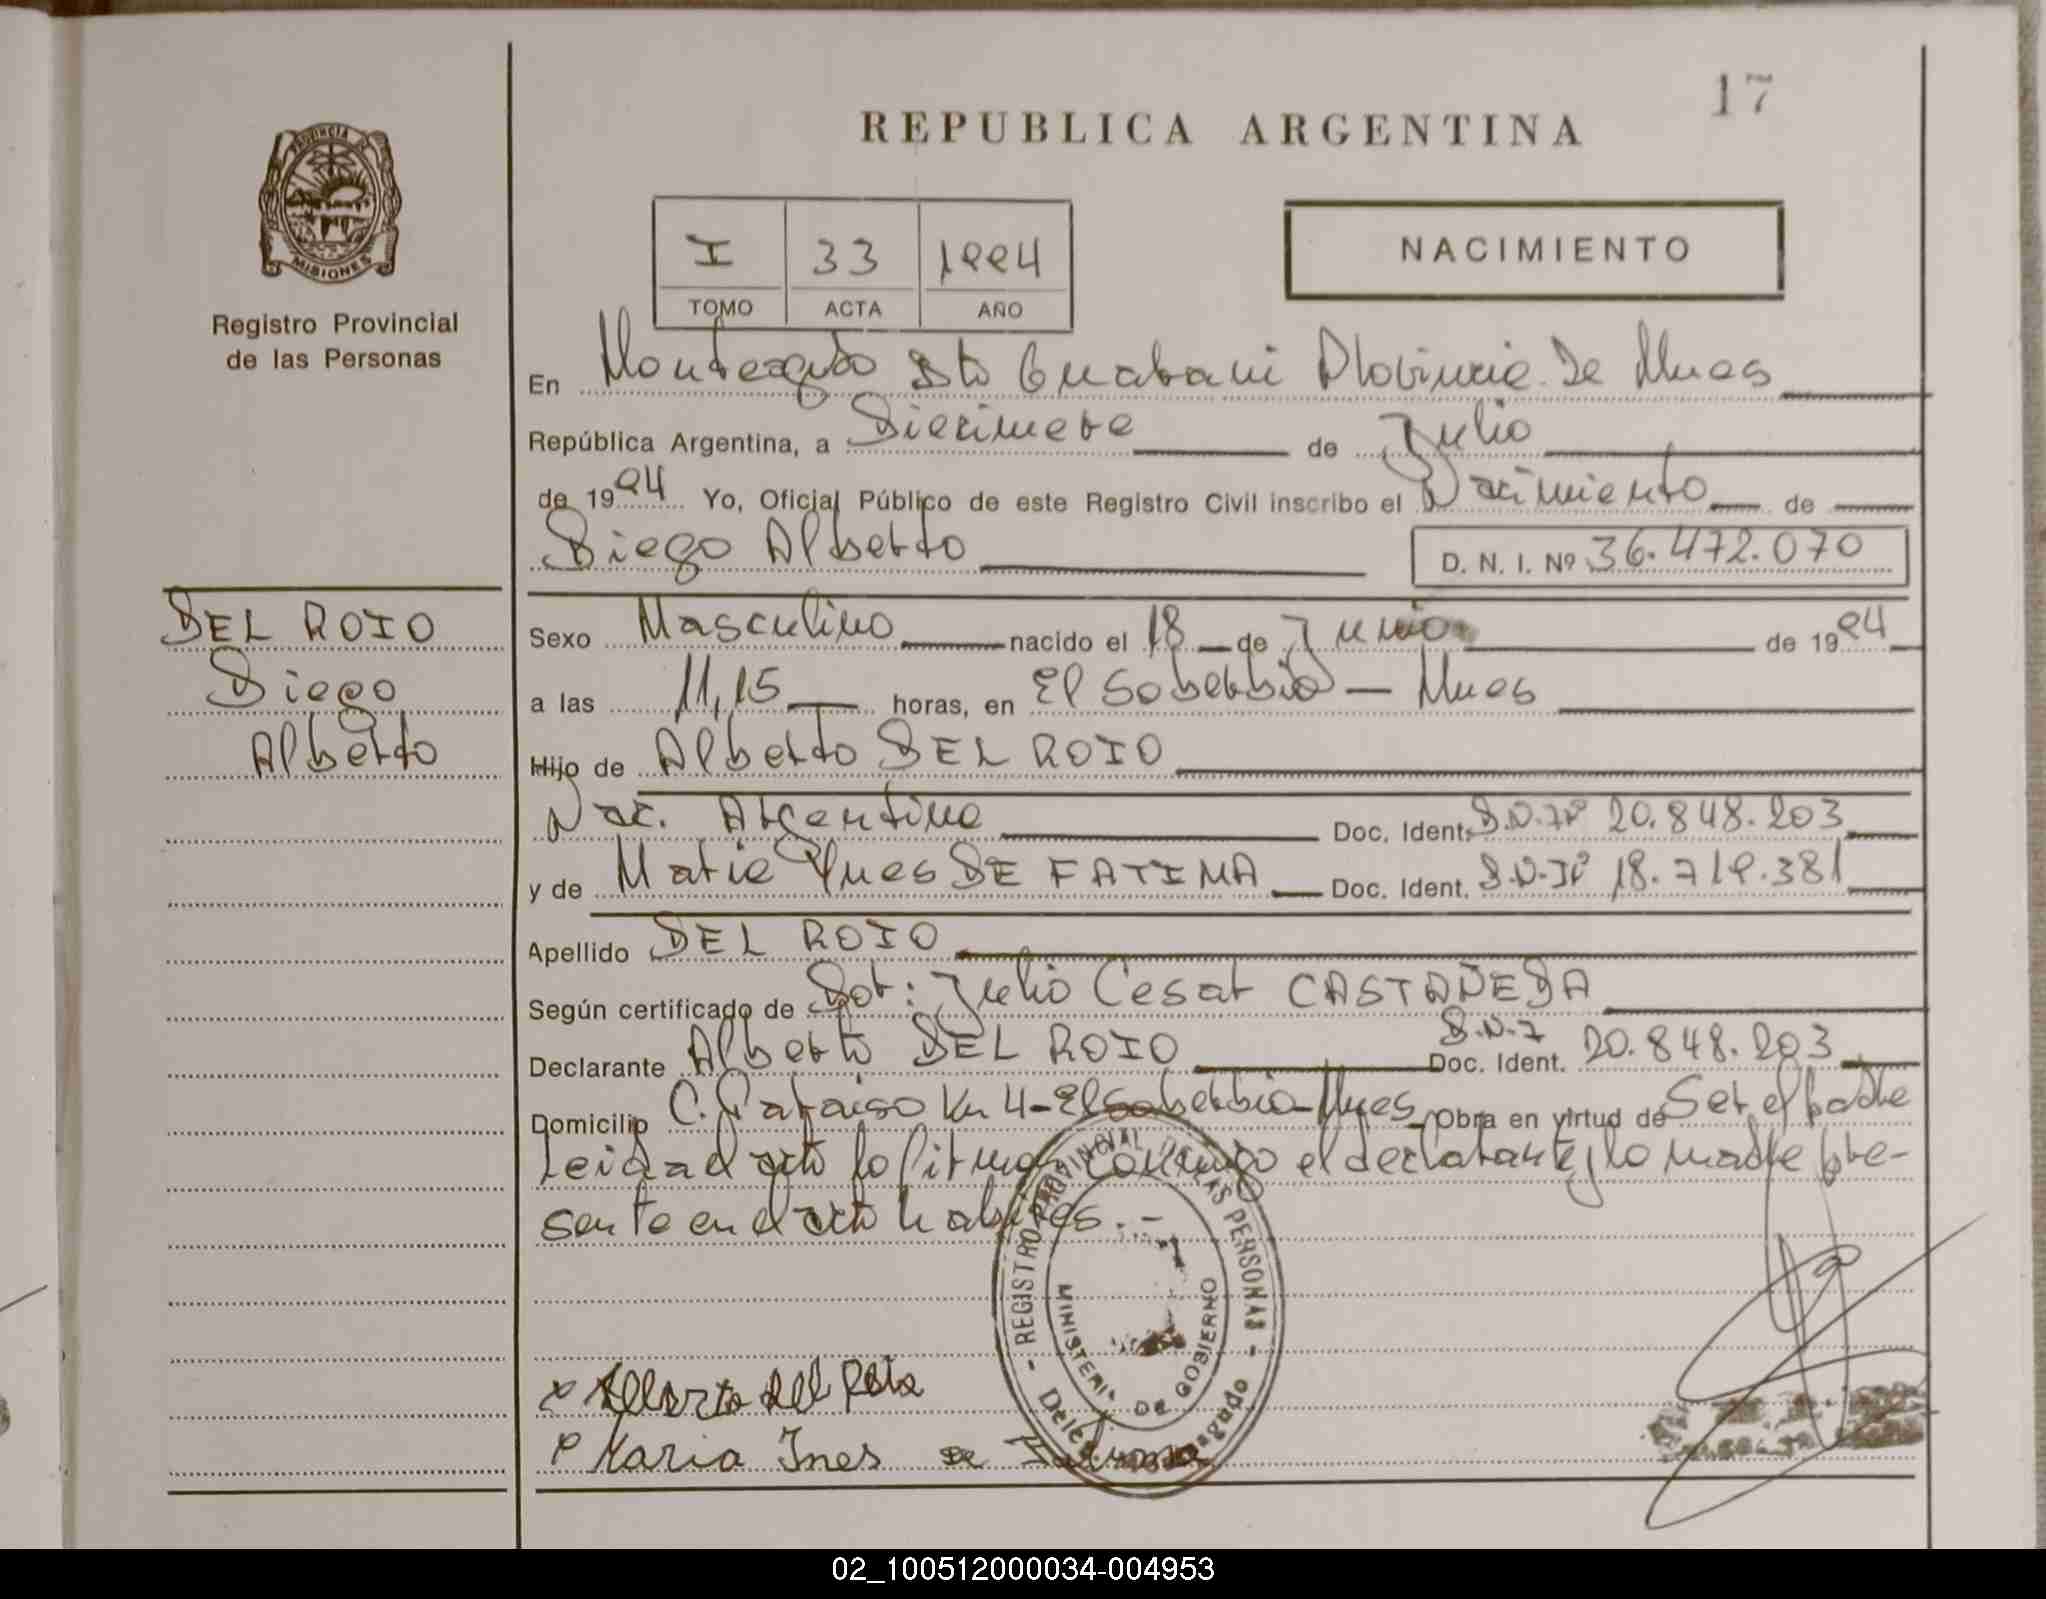 17
REPUBLICA ARGENTINA
PROVINCIA DE
MISIONES
Registro Provincial
de las Personas
I 33 1994
TOMO ACTA AÑO
NACIMIENTO
En Monteagudo Dto Guarani Provincia De Mnes
República Argentina, a Diecinueve de Julio
de 1994 Yo, Oficial Público de este Registro Civil inscribo el Nacimiento de
Diego Alberto D. N. I. Nº 36.472.070
DEL ROIO
Diego
Alberto
Sexo Masculino nacido el 18 de Junio de 1994
a las 11,15 horas, en El Soberbio - Mnes
Hijo de Alberto DEL ROIO
Nac. Argentina Doc. Ident. D.N.Iº 20.848.203
y de Maria Ynes DE FATIMA Doc. Ident. D.N.Iº 18.719.381
Apellido DEL ROIO
Según certificado de Dor: Julio Cesar CASTAÑEDA
Declarante Alberto DEL ROIO Doc. Ident. D.N.I 20.848.203
Domicilio C. Paraiso Km 4-El Soberbio-Mnes Obra en virtud de Ser el padre
Leida el acta la firma conmigo el declarante y la madre pre-
sente en el acto
REGISTRO PROVINCIAL DE LAS PERSONAS
MINISTERIO DE GOBIERNO
Alberto del Roio
Maria Ines de Fatima
02_100512000034-004953